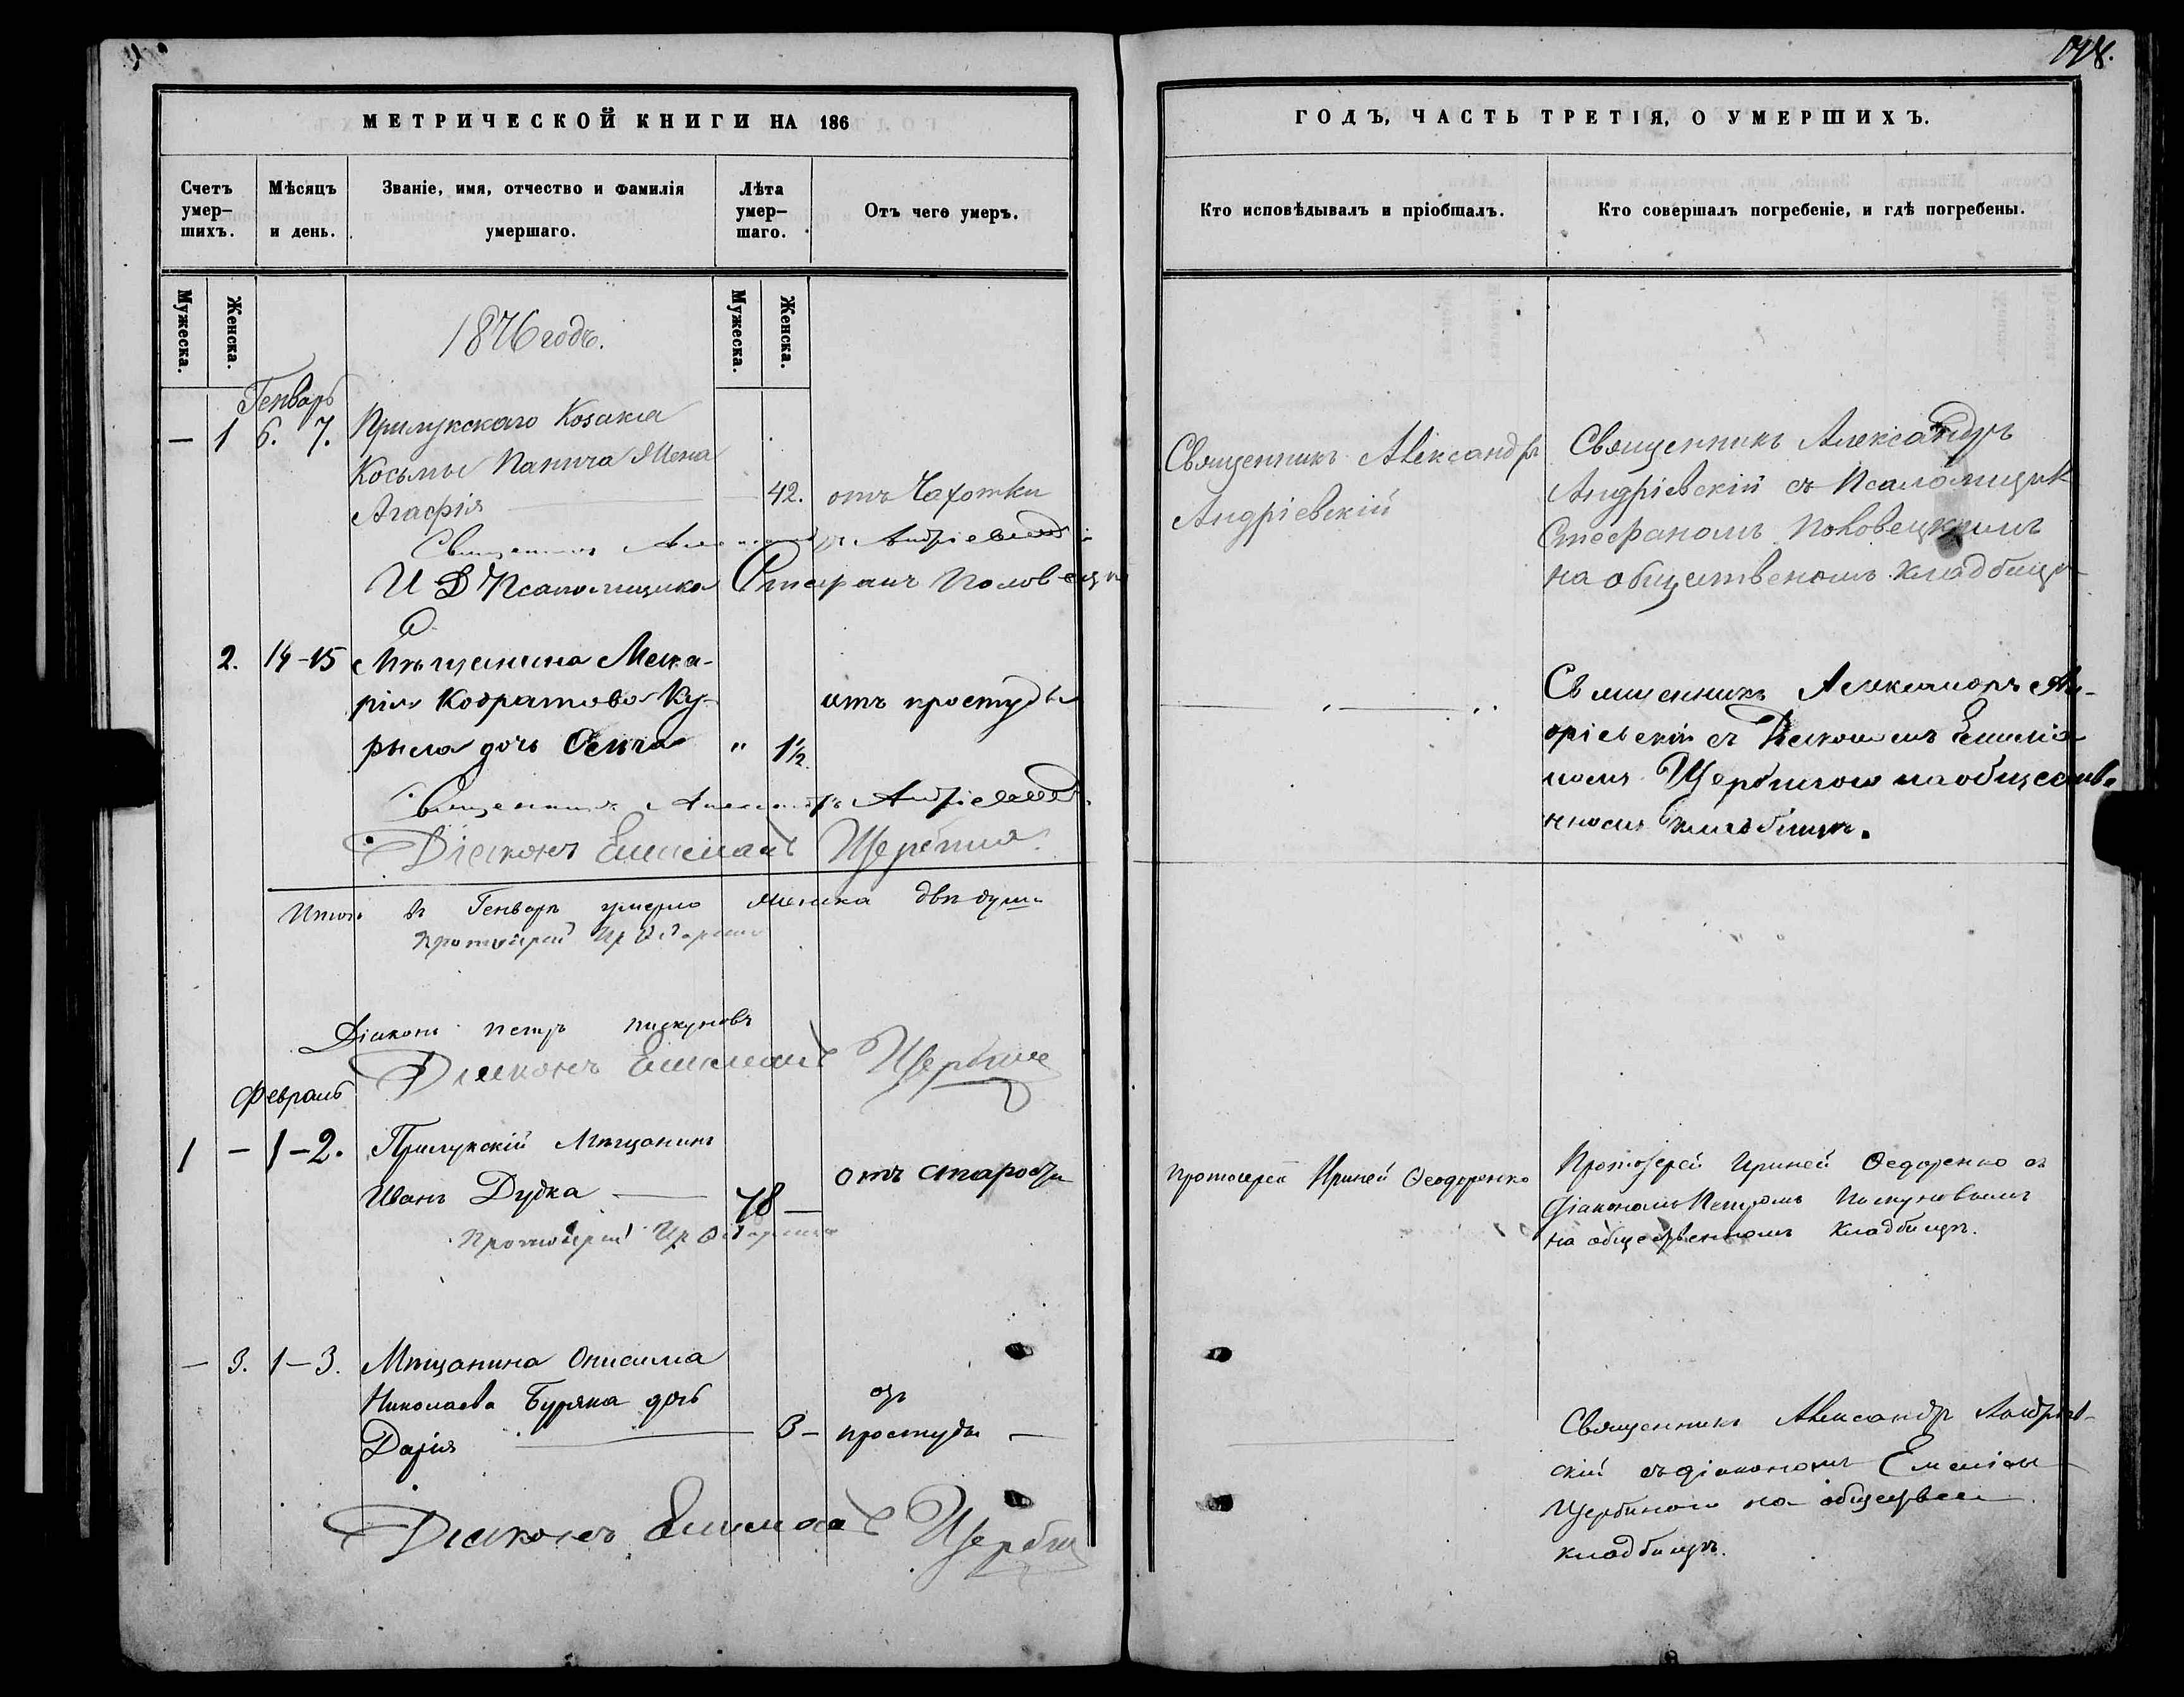 198.
МЕТРИЧЕСКОЙ КНИГИ НА 186
Счетъ умер-шихъ.
Мѣсяцъ и день.
Званіе, имя, отчество и фамилія умершаго.
Лѣта умер-шаго.
Отъ чего умеръ.
Мужеска.
Женска.
Мужеска.
Женска.
1876 годъ.
Генварь
— 1 6. 7. Прилукскаго Козака
Косьмы Панича Жена
Агафія — 42. отъ Чахотки
Священникъ Александръ Андріевскій
И Д Псаломщика Стефанъ Половецкій
2. 14-15 Мѣщанина Мака-
рія Кодратова Ку-
отъ простуды
рыла дочь Ольга " 1½
Священникъ Александръ Андріевскій
Діаконъ Емиліанъ Щербина
Итого въ Генварѣ умерло женска двѣ души
Протоіерей Ир Ѳедоренко
Діаконъ Петръ Пискуновъ
Діаконъ Емиліанъ Щербина
Февраль
1 — 1-2. Прилукскій Мѣщанинъ
Иванъ Дудка — 78 — отъ старости
Протоіерей Ир Ѳедоренко
— 3. 1-3. Мѣщанина Онисима
Николаева Буряка дочь
отъ
Дарія — 3 — простуды —
Діаконъ Емиліанъ Щербина
ГОДЪ, ЧАСТЬ ТРЕТІЯ, О УМЕРШИХЪ.
Кто исповѣдывалъ и пріобщалъ.
Кто совершалъ погребеніе, и гдѣ погребены.
Священникъ Александръ
Андріевскій
Священникъ Александръ
Андріевскій съ Псаломщик
Стефаномъ Половецкимъ
на общественомъ кладбищѣ
Священникъ Александръ Ан-
дріевскій съ Діакономъ Емилиа-
номъ Щербиною на обществе
нномъ кладбищѣ.
Протоіерей Ириней Ѳеодоренко
Протоіерей Ириней Ѳедоренко съ
Діакономъ Петромъ Пискуновымъ
на общественномъ Кладбищѣ.
Священникъ Александръ Андріев-
скій съ діакономъ Емиліан
Щербиною на обществен
кладбищѣ.